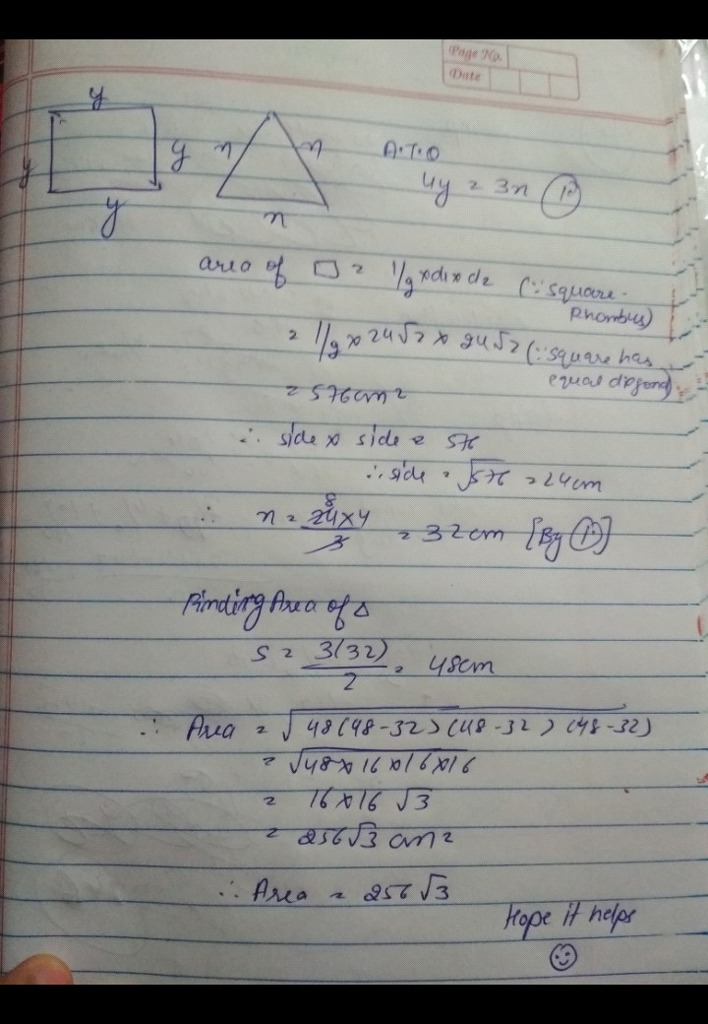 Page No.
Date
y
y y n n A.T.Q
4y = 3n (1.)
y n
area of □ = 1/2 × d1 × d2 (∵ square - Rhombus)
= 1/2 × 24√2 × 24√2 (∵ square has equal diagonal)
= 576cm2
∴ side × side = 576
∴ side = √576 = 24cm
∴ n = 24×4/3 8 = 32cm [By (1.)]
Finding Area of △
S = 3(32)/2 = 48cm
∴ Area = √48(48-32)(48-32)(48-32)
= √48×16×16×16
= 16×16√3
= 256√3 cm2
∴ Area = 256√3
Hope it helps
☺